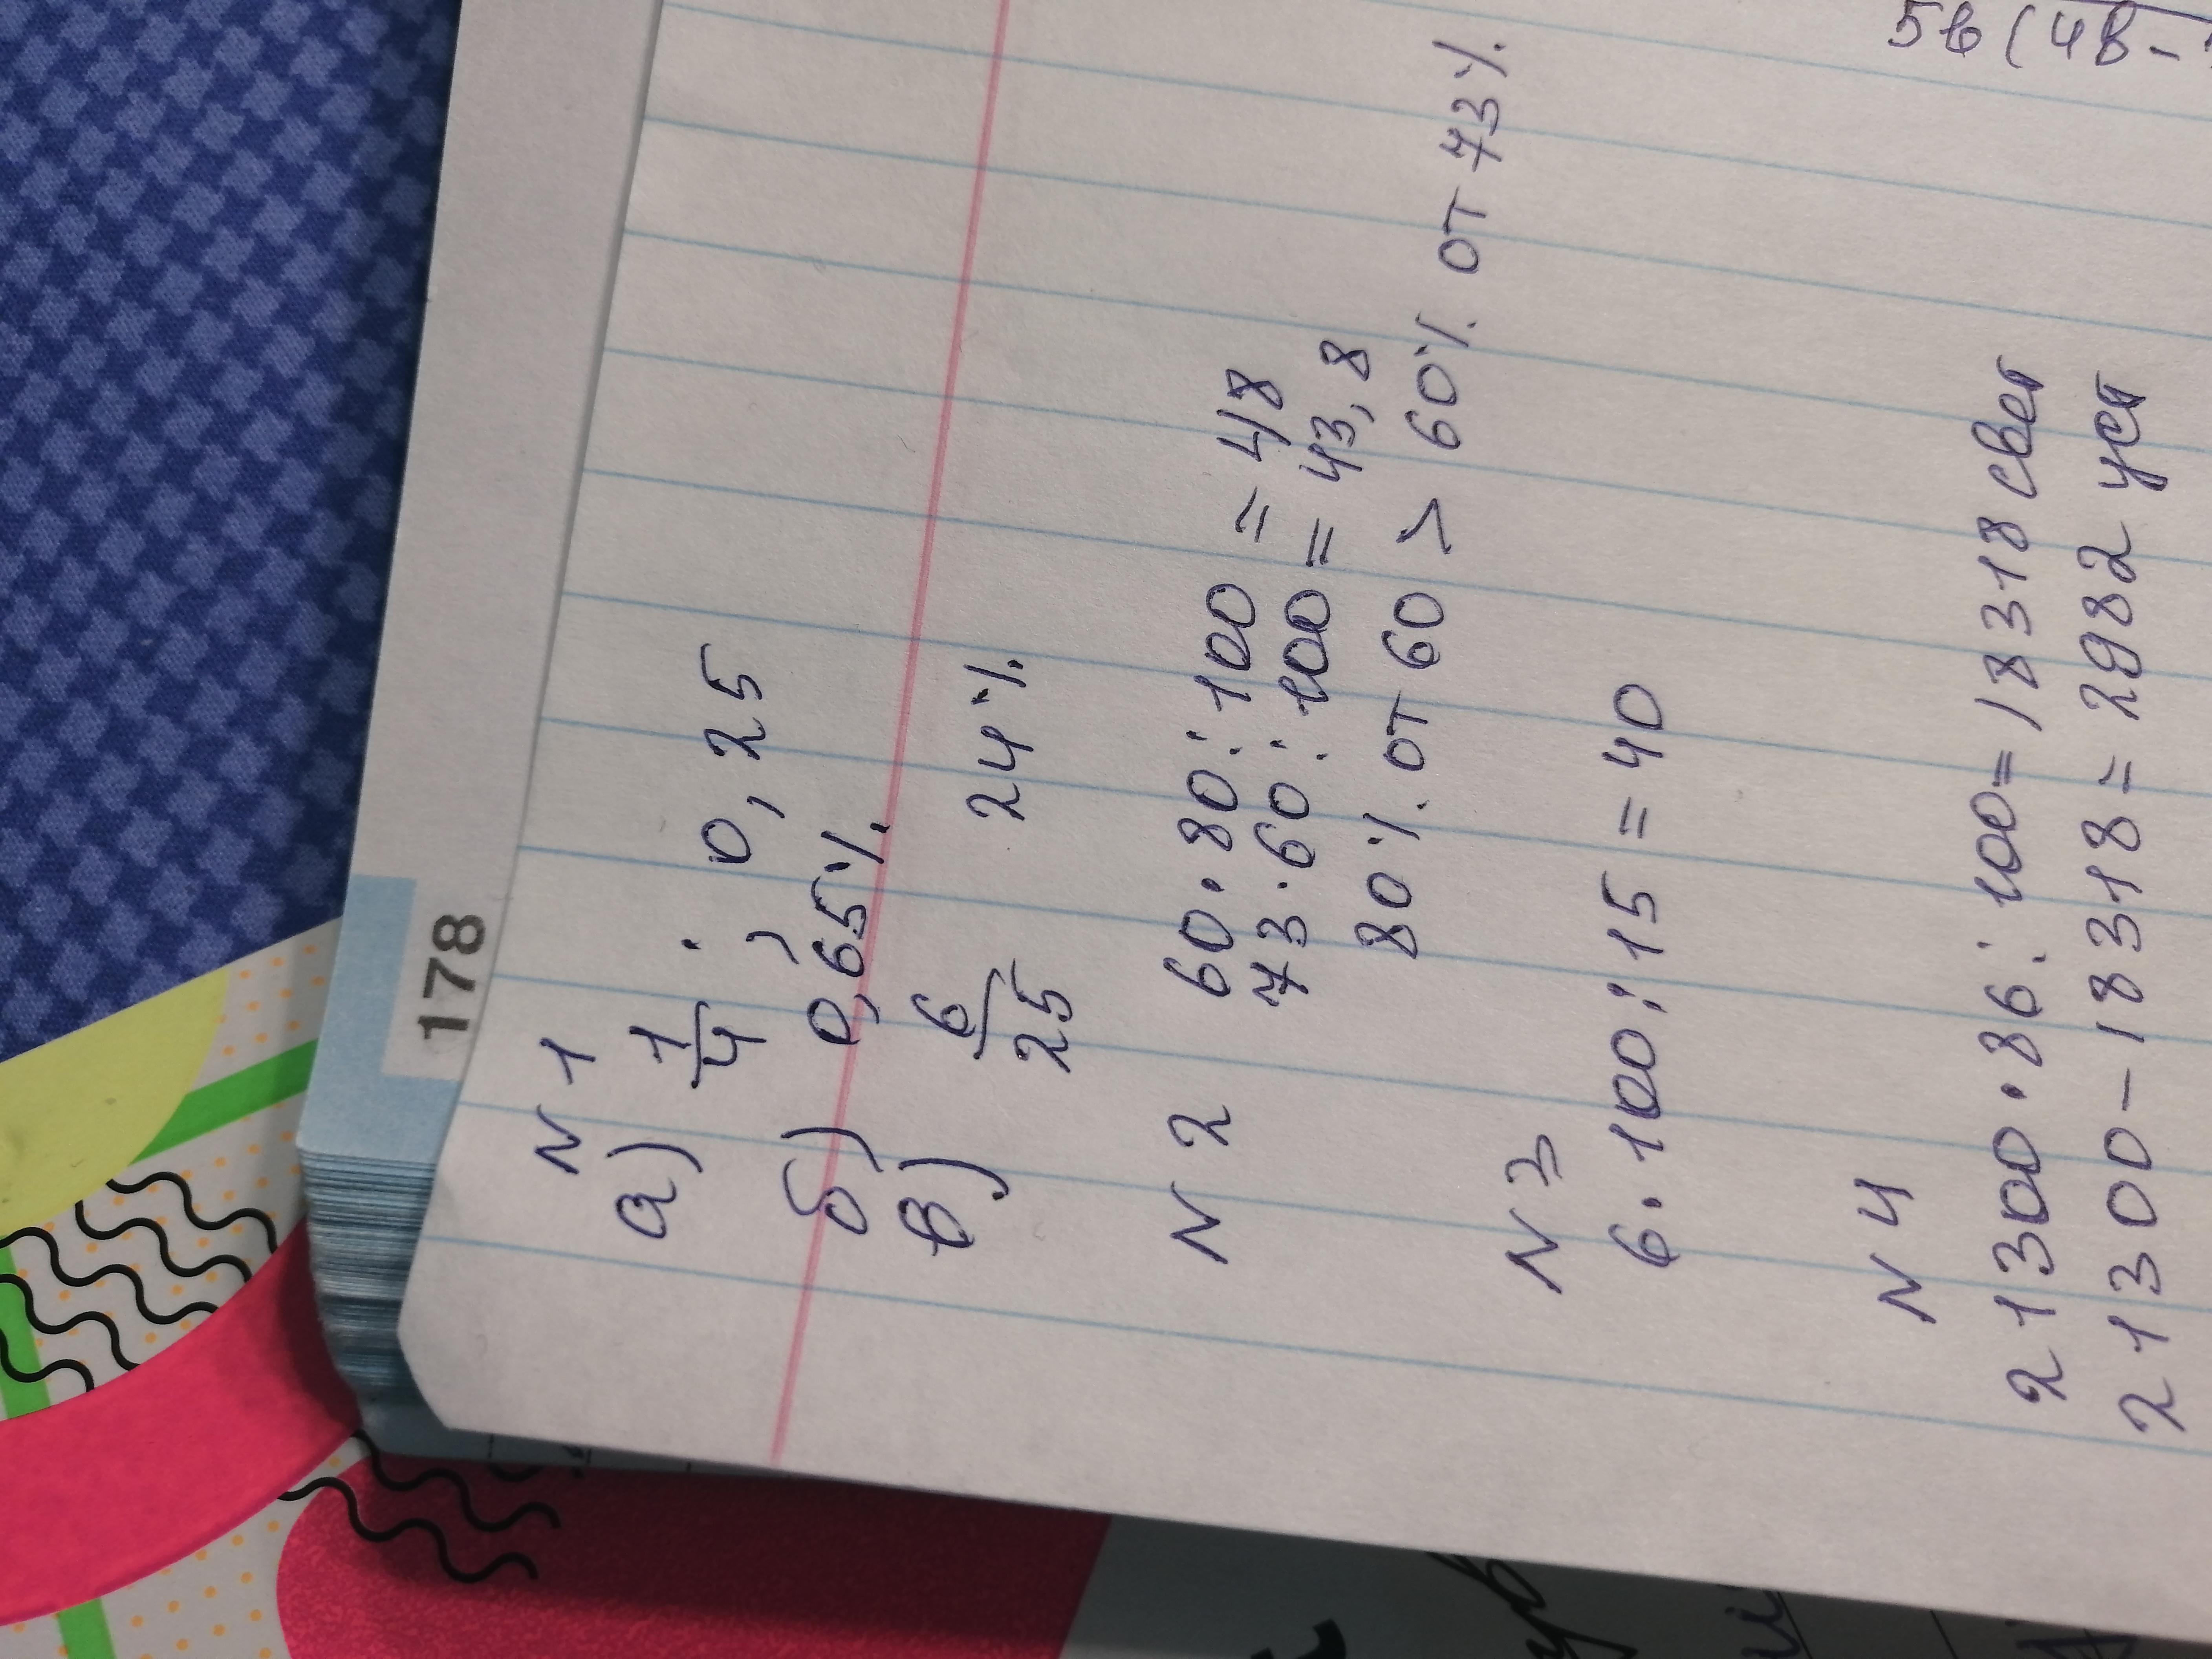 178
N 1
а) 1/4 ; 0,25
б) 0,65%
в) 6/25 24%
N 2 60·80:100 = 48
73·60:100 = 43,8
80% от 60 > 60% от 73%
N 3
6·100:15 = 40
N 4
21300·86:100=18318 свет
21300-18318=2982 уст
5в(4в